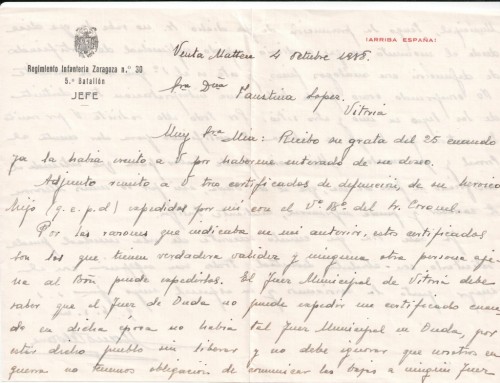 ¡ARRIBA ESPAÑA!
Regimiento Infantería Zaragoza n.º 30
5.º Batallón
JEFE
Venta 4 Octubre 1938.
Sra Dña
Faustina Lopez.
Vitoria
Muy Sra Mia: Recibo su grata del 25 cuando
ya la habia escrito a V por haberme enterado de su deseo.
Adjunto remito a V tres certificados de defuncion, de su heroico
hijo (q.e.p.d) expedidos por mi con el Vº Bº. del Sr. Coronel.
Por las razones que indicaba en mi anterior, estos certificados
son los que tienen verdadera validez y ninguna otra persona aje-
na al Bón puede expedirlos. El Juez Municipal de Vitoria debe
saber que el Juez de Duda no puede expedir un certificado cuan-
do en dicha epoca no habia tal Juez Municipal en Duda, por
estar dicho pueblo sin liberar y no debe ignorar que nosotros en
guerra no tenemos obligacion de comunicar las bajas a ningun Juez